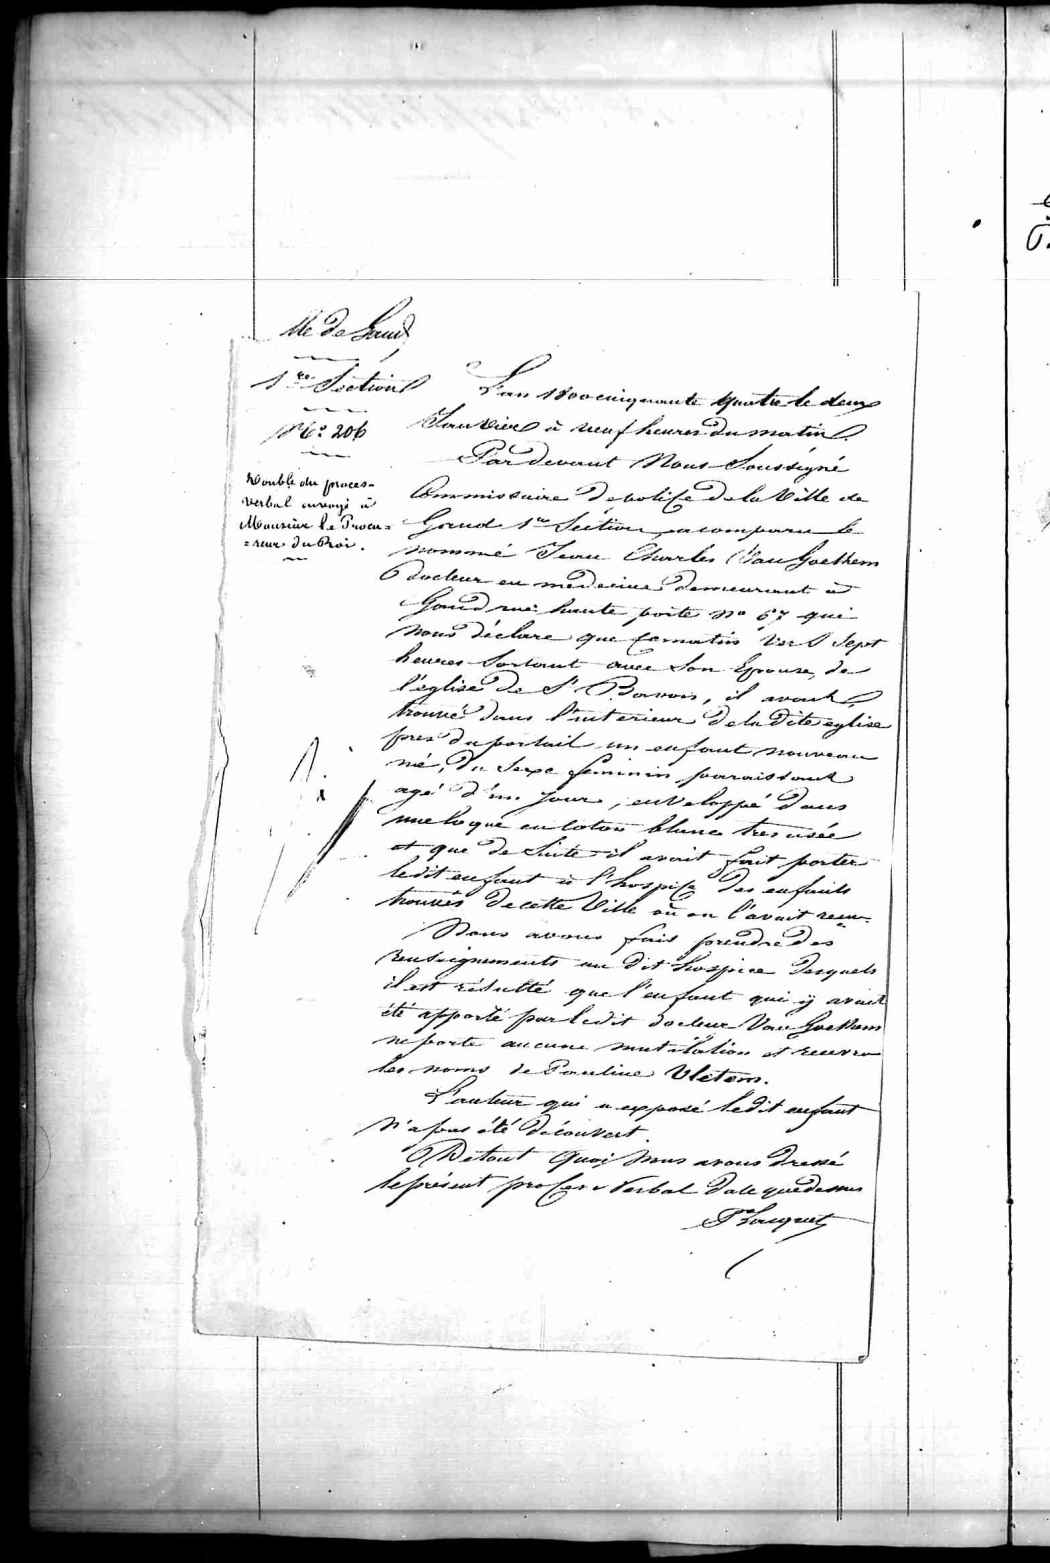 Ville de Gand
1re Section
No 206
Double du proces-
verbal envoyé à
Monsieur le Procu-
=reur du Roi.
L'an 1800 cinquante quatre le deux
Janvier à neuf heures du matin.
Par devant Nous Soussigné
Commissaire de police de la Ville de
Gand 1re Section, a comparu le
nommé Jean Charles Van Goethem
docteur en medecine demeurant à
Gand rue haute porte no 67 qui
nous déclare que ce matin vers Sept
heures Sortant avec Son Epouse, de
l'église de St Bavon, il avait
trouvé dans l'interieur de la dite eglise
pres du portail un enfant nouveau
né, du Sexe feminin, paraissant
agé d'un jour, enveloppé dans
une loque en coton blanc tres usée
et que de Suite il avait fait porter
ledit enfant à l'hospice des enfants
trouvés de cette Ville où on l'avait recu.
Nous avons fait prendre des
renseignements au dit hospice desquels
il est résulté que l'enfant qui y avait
été apporté par ledit docteur Van Goethem
ne porte aucune mutilation et recevra
les noms de Pauline Vletem.
L'auteur qui a exposé ledit enfant
n'a pas été découvert.
De tout quoi nous avons dressé
le présent procès-Verbal date que dessus